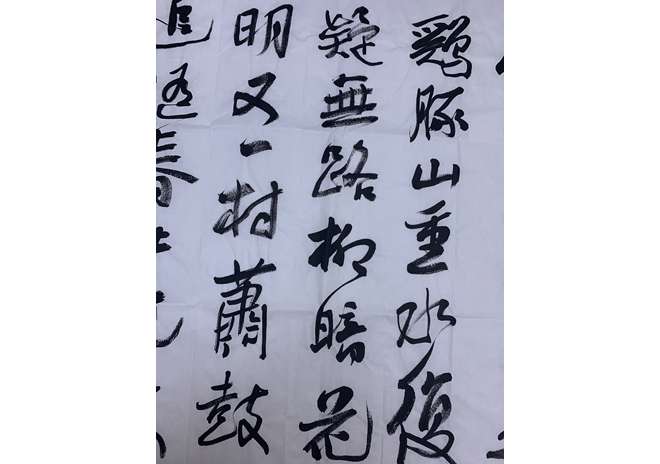 鷄豚山重水復
疑無路柳暗花
明又一村蕭鼓
追隨春社